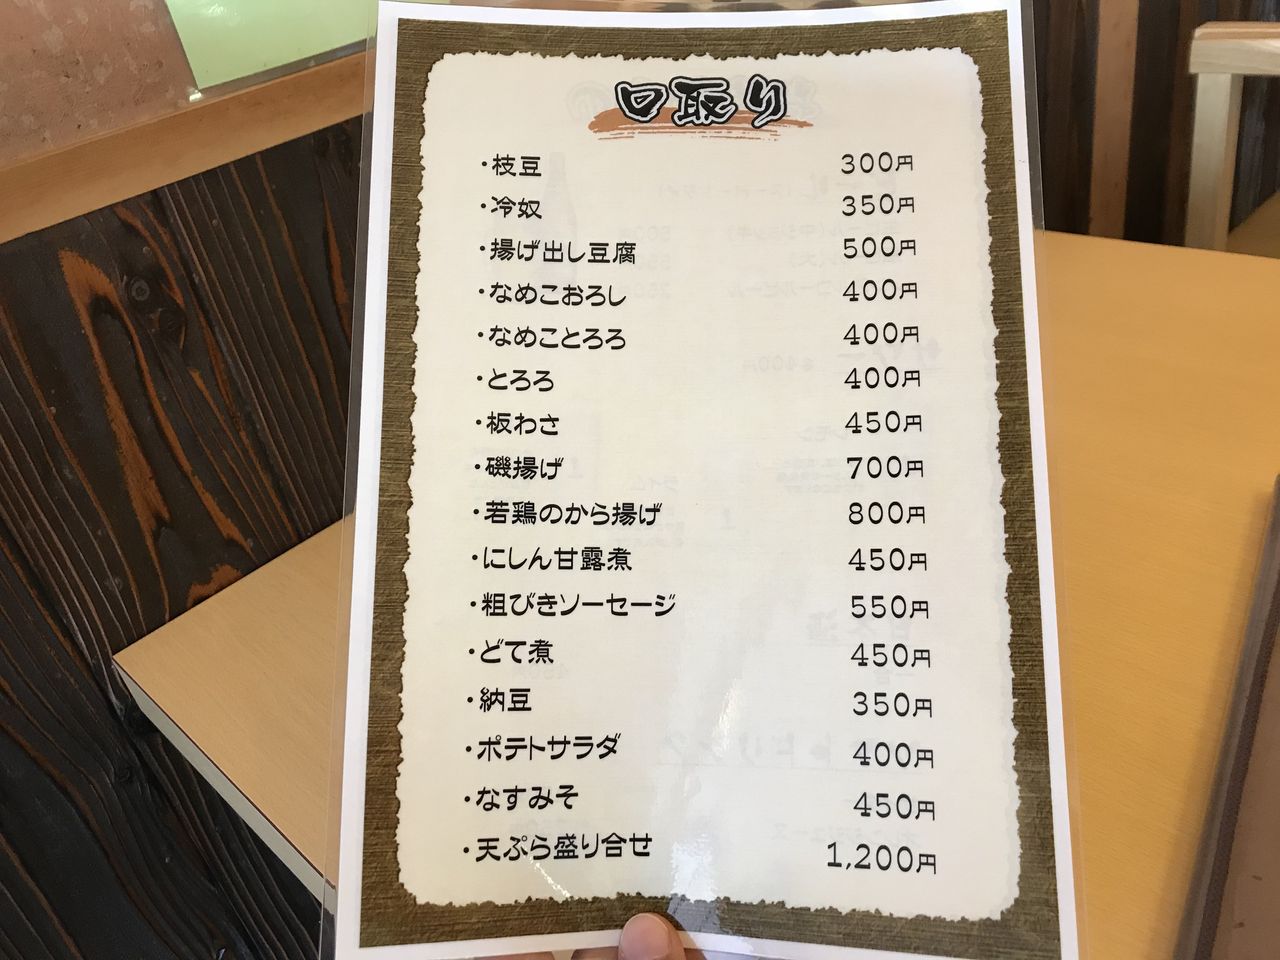 口取り
・枝豆 300円
・冷奴 350円
・揚げ出し豆腐 500円
・なめこおろし 400円
・なめことろろ 400円
・とろろ 400円
・板わさ 450円
・磯揚げ 700円
・若鶏のから揚げ 800円
・にしん甘露煮 450円
・粗びきソーセージ 550円
・どて煮 450円
・納豆 350円
・ポテトサラダ 400円
・なすみそ 450円
・天ぷら盛り合せ 1,200円